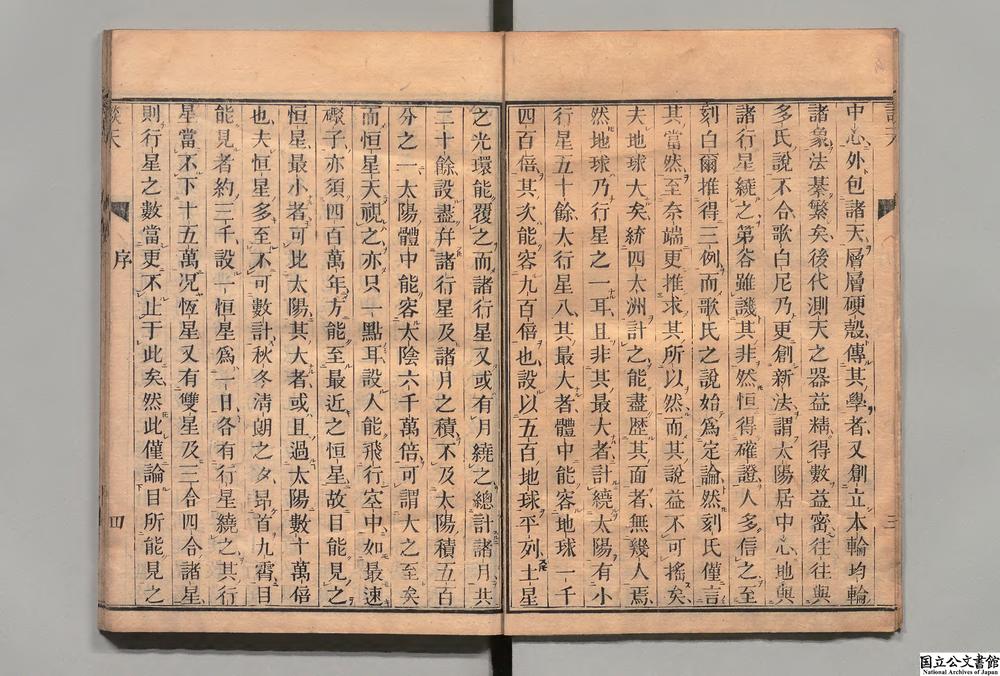 談天
中心外包諸天層層硬殼傳其學者又創立本輪均輪
諸象法綦繁矣後代測天之器益精得數益密往往與
多氏說不合歌白尼乃更創新法謂太陽居中心地與
諸行星繞之第谷雖譏其非然恒得確證人多信之至
刻白爾推得三例而歌氏之說始爲定論然刻氏僅言
其當然至奈端更推求其所以然而其說益不可搖矣
夫地球大矣統四大洲計之能盡歷其面者無幾人焉
然地球乃行星之一耳且非其最大者計繞太陽有小
行星五十餘大行星八其最大者體中能容地球一千
四百倍其次能容九百倍也設以五百地球平列土星
三
之光環能覆之而諸行星又或有月繞之總計諸月共
三十餘設盡并諸行星及諸月之積不及太陽積五百
分之一太陽體中能容太陰六千萬倍可謂大之至矣
而恒星天視之亦只一點耳設人能飛行空中如最速
礮子亦須四百萬年方能至最近之恒星故目能見之
恒星最小者可比太陽其大者或且過太陽數十萬倍
也夫恒星多至不可數計秋冬清朗之夕昂首九霄目
能見者約三千設一恒星爲一日各有行星繞之其行
星當不下十五萬况恆星又有雙星及三合四合諸星
則行星之數當更不止于此矣然此僅論目所能見之
談天
序
四
国立公文書館
National Archives of Japan